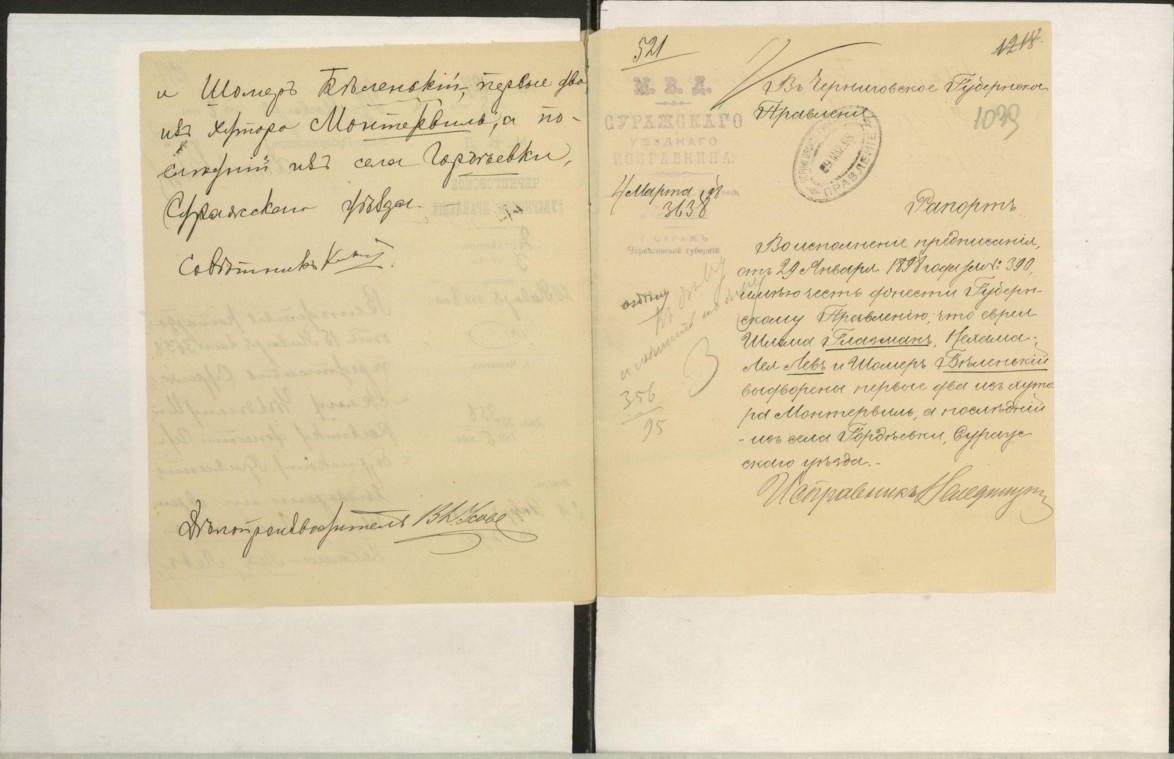 и Шомеръ Бѣленскій, первые два
изъ хутора Монтервиль, а по-
слѣдній изъ села Гордѣевки,
Суражскаго уѣзда.
Совѣтникъ
Дѣлопроизводитель
521
1218.
1033
М. В. Д.
СУРАЖСКАГО
УѢЗДНАГО
ИСПРАВНИКА.
4 Марта 1898
3638
Г. СУРАЖЪ
Черниговской губерніи
Въ Черниговское Губернское
Правленіе
ПРАВЛЕНІЕ
Рапортъ
Во исполненіе предписанія,
отъ 29 Января 1898 года за № 390,
имѣю честь донести Губерн-
скому Правленію, что евреи
Шлома Глазманъ, Нехама-
Лея Левъ и Шомеръ Бѣленскій
выдворены первые два изъ хуто
ра Монтервиль, а послѣдній
- изъ села Гордѣевки, Сураж-
скаго уѣзда.-
Исправникъ
356
95